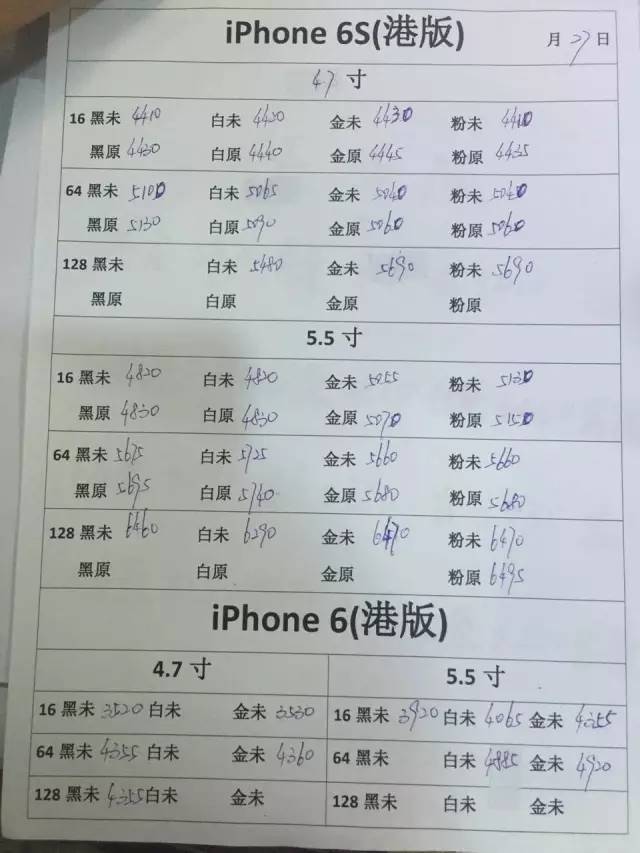 iPhone 6S(港版) 月27日
4.7寸
16 黑未 4410 白未 4420 金未 4430 粉未 4410
黑原 4430 白原 4440 金原 4445 粉原 4435
64 黑未 5100 白未 5065 金未 5040 粉未 5040
黑原 5130 白原 5090 金原 5060 粉原 5060
128 黑未 白未 5480 金未 5690 粉未 5690
黑原 白原 金原 粉原
5.5寸
16 黑未 4820 白未 4820 金未 5055 粉未 5130
黑原 4830 白原 4830 金原 5070 粉原 5150
64 黑未 5675 白未 5725 金未 5660 粉未 5660
黑原 5695 白原 5740 金原 5680 粉原 5680
128 黑未 6460 白未 6290 金未 6470 粉未 6470
黑原 白原 金原 粉原 6495
iPhone 6(港版)
4.7寸 5.5寸
16 黑未 3520 白未 金未 3530 16 黑未 3920 白未 4065 金未 4355
64 黑未 4355 白未 金未 4360 64 黑未 白未 4885 金未 4920
128 黑未 4355 白未 金未 128 黑未 白未 金未